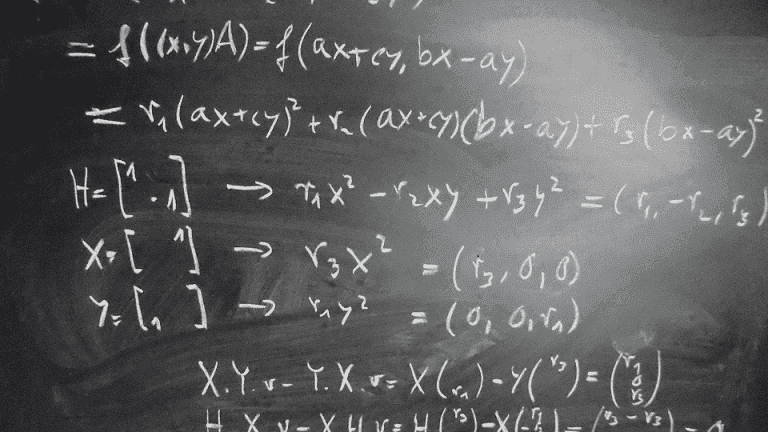 = f((x,y)A) = f(ax+cy, bx-ay)
= r₁(ax+cy)² + r₂(ax+cy)(bx-ay) + r₃(bx-ay)²
H = [¹ · ₁] → r₁x² - r₂xy + r₃y² = (r₁, -r₂, r₃)
X = [ ¹] → r₃x² = (r₃, 0, 0)
Y = [₁ ] → r₁y² = (0, 0, r₁)
X.Y.v - Y.X.v = X(r₁) - Y(r₃) = (r₁ 0 r₃)
H X v - X H v = H(r₃) - X